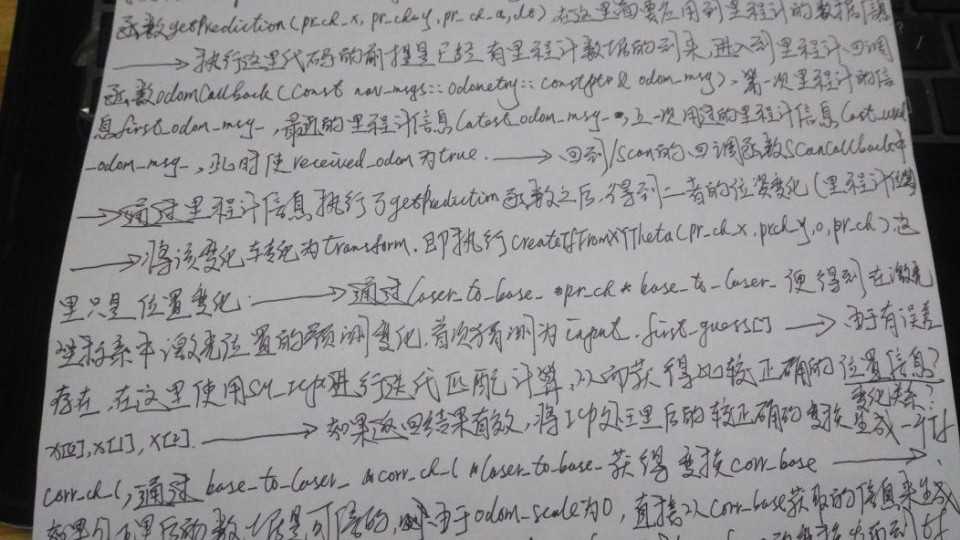 函数getPrediction(pr_ch_x, pr_ch_y, pr_ch_a, dt) 在这里面要应用到里程计的数据信息
→ 执行这里代码的前提是已经有里程计数据的到来,进入到里程计回调
函数odomCallback(const nav_msgs::Odometry::ConstPtr& odom_msg)、第一次里程计的信
息first_odom_msg_,最近的里程计信息latest_odom_msg_,上一次用过的里程计信息last_used
_odom_msg_,此时使received_odom为true. → 回到/scan的回调函数scanCallback中
→ 通过里程计信息执行了getPrediction函数之后,得到二者的位姿变化(里程计
→ 将该变化转化为transform.即执行createTfFromXYTheta(pr_ch_x,pr_ch_y,0,pr_ch).这
里只是位置变化. → 通过laser_to_base_*pr_ch*base_to_laser_ 便得到在激光
坐标系中激光位置的预测变化.首次猜测为input.first_guess[] → 由于有误差
存在,在这里使用sm_icp进行迭代匹配计算,从而获得比较正确的位置信息?
变化关系?
x[0],x[1],x[2]. → 如果返回结果有效,将ICP处理后的较正确的变换生成一个tf
corr_ch_l,通过base_to_laser_*corr_ch_l*laser_to_base_获得变换corr_base →
数据是可信的, 由于odom_scale为0,直接从corr_base获取的信息来生成